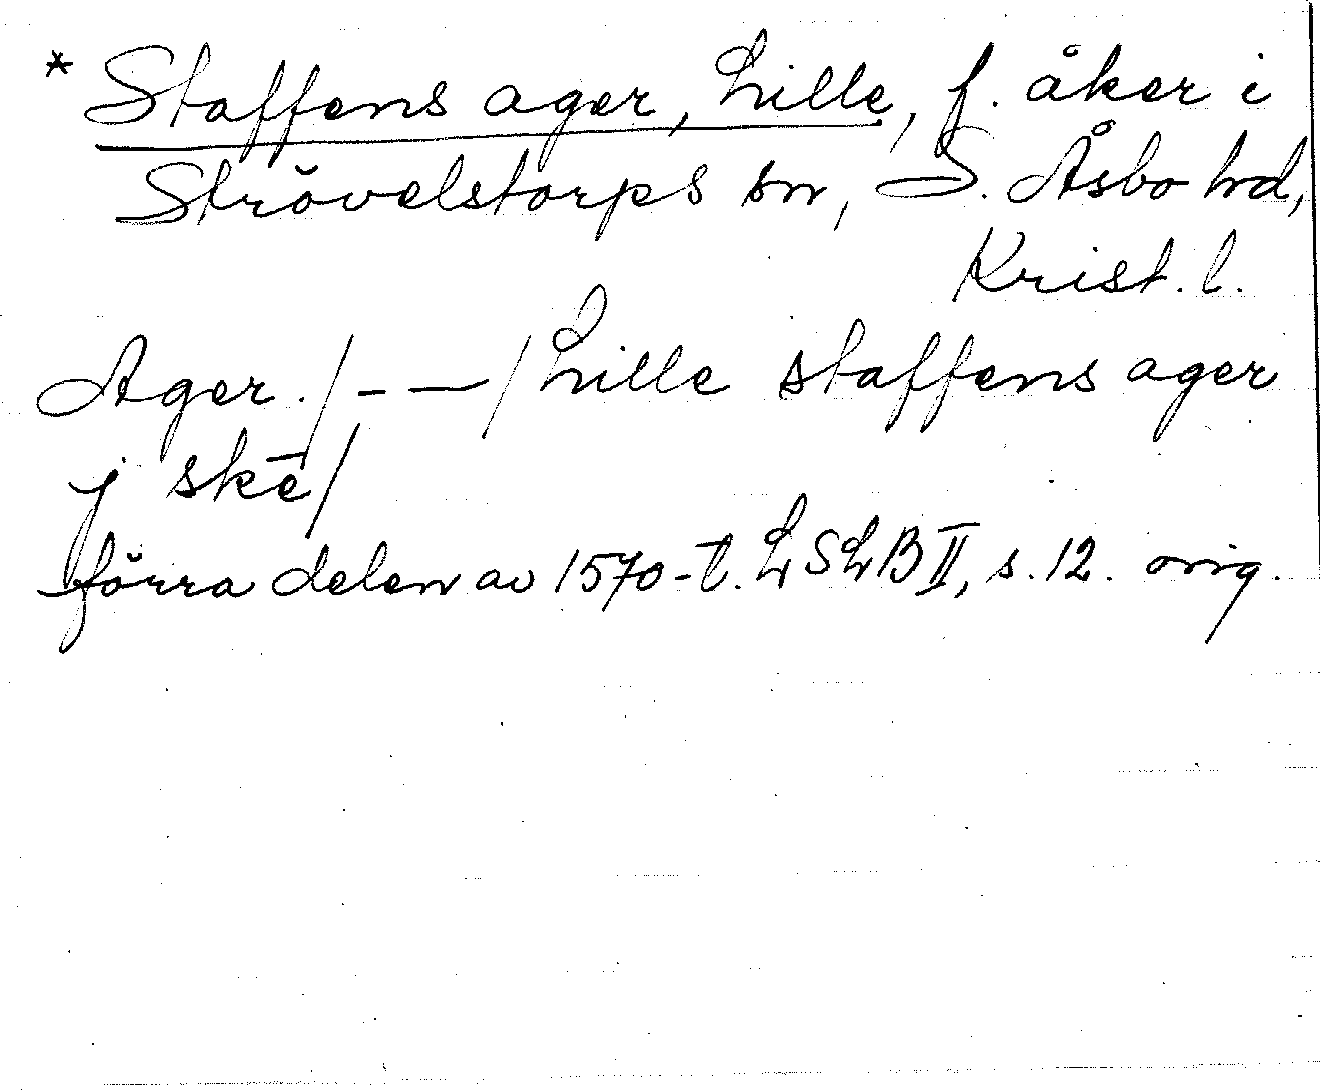 * Staffens ager, Lille, f. åker i
Strövelstorps sn, S. Åsbo hd,
Krist. l.
Ager. /- —/ Lille staffens ager
j skē/
förra delen av 1570-t. LSLB II, s. 12. orig.